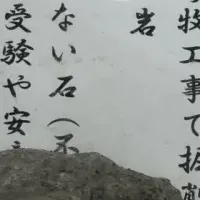 牧工事で掘削
岩
ない石(不
受験や安